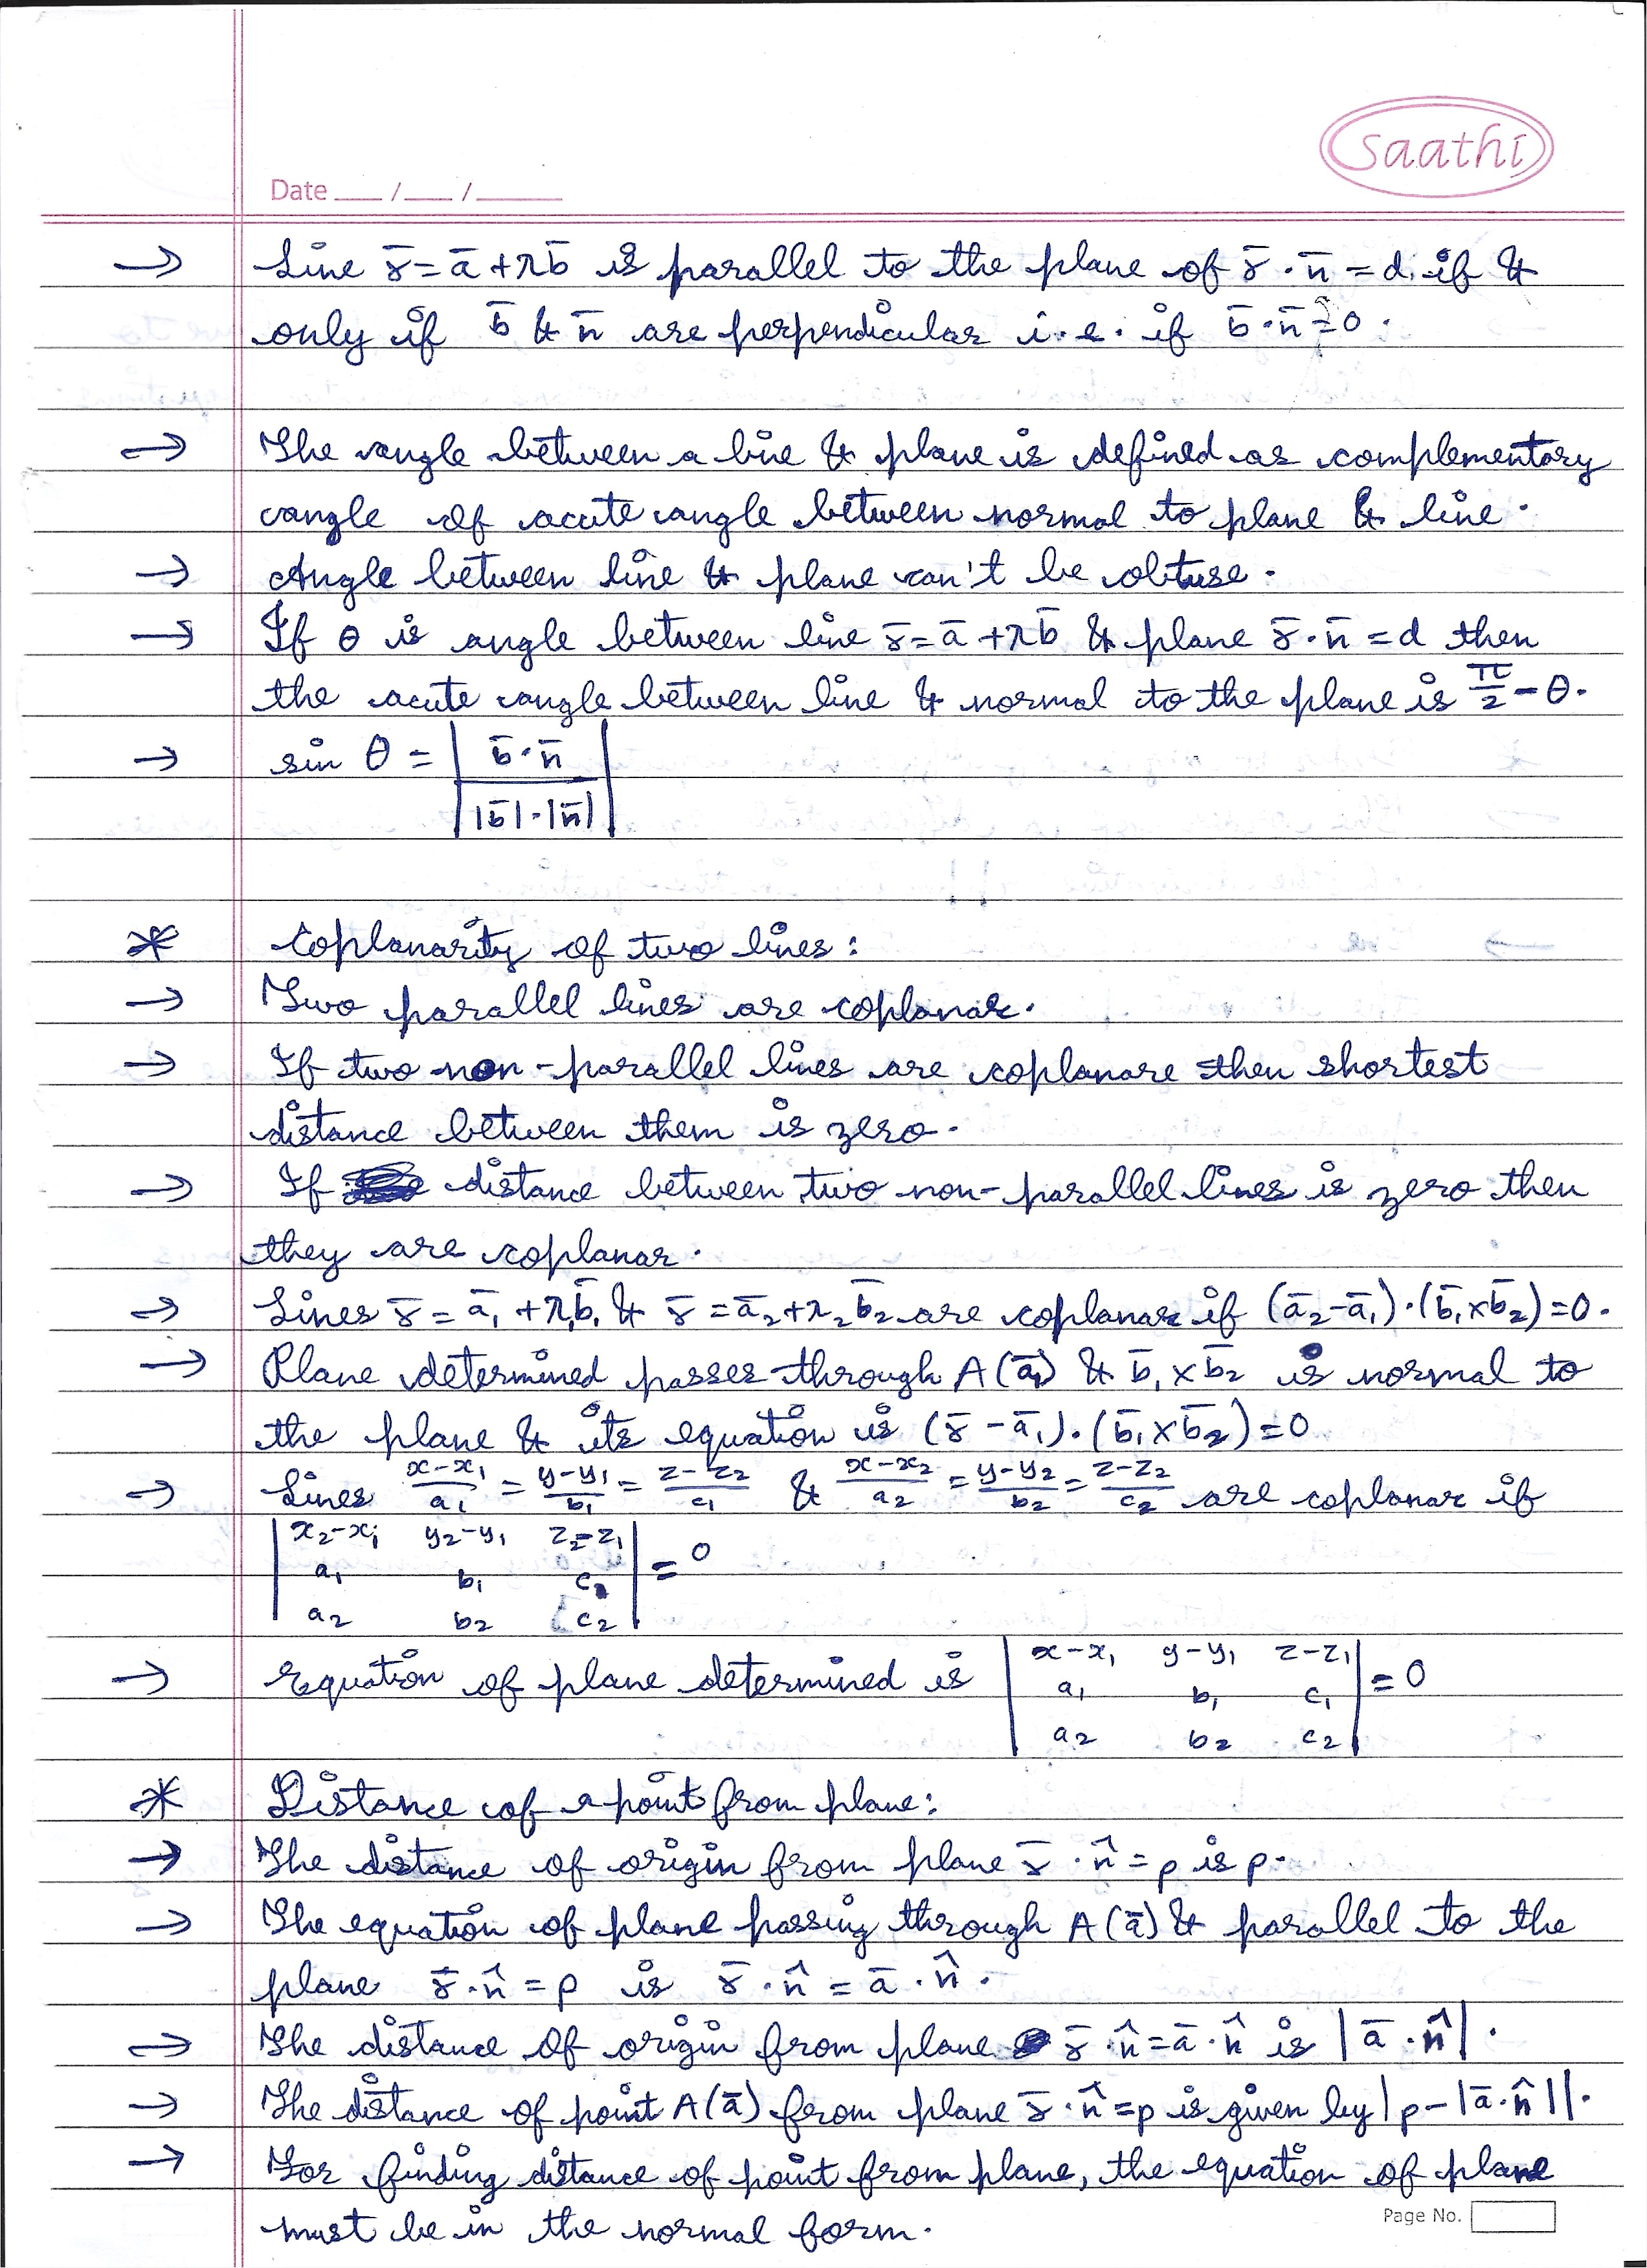 saathi
Date ___ / ___ / ______
→ Line r̄ = ā + λb̄ is parallel to the plane of r̄ · n̄ = d. if &
only if b̄ & n̄ are perpendicular i.e. if b̄ · n̄ = 0 .
→ The angle between a line & plane is defined as complementary
angle of acute angle between normal to plane & line.
→ Angle between line & plane can't be obtuse.
→ If θ is angle between line r̄ = ā + λb̄ & plane r̄ · n̄ = d then
the acute angle between line & normal to the plane is π/2 - θ.
→ sin θ = | b̄ · n̄ / |b̄| · |n̄| |
* Coplanarity of two lines :
→ Two parallel lines are coplanar.
→ If two non-parallel lines are coplanare then shortest
distance between them is zero.
→ If distance between two non-parallel lines is zero then
they are coplanar.
→ Lines r̄ = ā₁ + λ₁b̄₁ & r̄ = ā₂ + λ₂b̄₂ are coplanar if (ā₂ - ā₁) · (b̄₁ × b̄₂) = 0.
→ Plane determined passes through A(ā₁) & b̄₁ × b̄₂ is normal to
the plane & its equation is (r̄ - ā₁) · (b̄₁ × b̄₂) = 0
→ Lines x-x₁/a₁ = y-y₁/b₁ = z-z₂/c₁ & x-x₂/a₂ = y-y₂/b₂ = z-z₂/c₂ are coplanar if
| x₂-x₁ y₂-y₁ z₂-z₁ |
| a₁ b₁ c₁ | = 0
| a₂ b₂ c₂ |
→ Equation of plane determined is | x-x₁ y-y₁ z-z₁ |
| a₁ b₁ c₁ | = 0
| a₂ b₂ c₂ |
* Distance of a point from plane :
→ The distance of origin from plane r̄ · n̂ = p is p.
→ The equation of plane passing through A(ā) & parallel to the
plane r̄ · n̂ = p is r̄ · n̂ = ā · n̂ .
→ The distance of origin from plane r̄ · n̂ = ā · n̂ is |ā · n̂| .
→ The distance of point A(ā) from plane r̄ · n̂ = p is given by |p - |ā · n̂||.
→ For finding distance of point from plane, the equation of plane
must be in the normal form.
Page No.